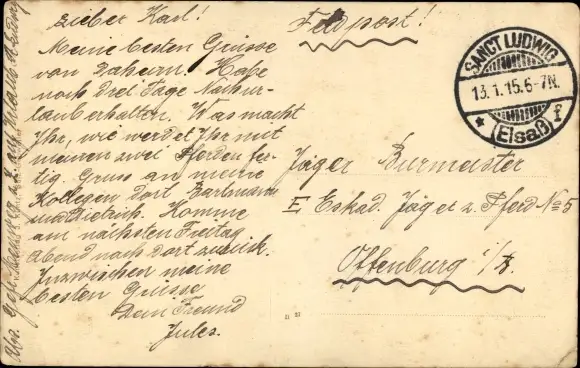 Lieber Karl!
Meine besten Grüsse
von Daheim! Habe
noch drei Tage Nachur-
laub erhalten. Was macht
Ihr, wie werdet Ihr mit
meinen zwei Pferden fer-
tig. Gruss an meine
Kollegen dort Bartmann
und Dietrich. Komme
am nächsten Freitag
Abend nach dort zurück.
Inzwischen meine
besten Grüsse
Dein Freund
Jules.
Feldpost!
SANCT LUDWIG
13.1.15.6-7N.
* (Elsaß) f
Jäger Burmeister
E Eskad. Jäger z. Pferd No 5
Offenburg i/B.
Abs.